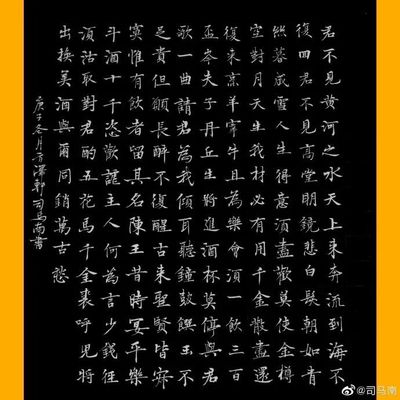 君不見黄河之水天上来奔流到海不
復回君不見高堂明鏡悲白髮朝如青
絲暮成雪人生得意須盡歡莫使金樽
空對月天生我材必有用千金散盡還
復来烹羊宰牛且為樂會須一飲三百
盃岑夫子丹丘生將進酒杯莫停與君
歌一曲請君為我傾耳聽鐘鼓饌玉不
足貴但願長醉不復醒古来聖賢皆寂
寞惟有飲者留其名陳王昔時宴平樂
斗酒十千恣歡謔主人何為言少錢徑
須沽取對君酌五花馬千金裘呼兒將
出換美酒與爾同銷萬古愁
庚子冬月方澤軒司馬南書
@司马南